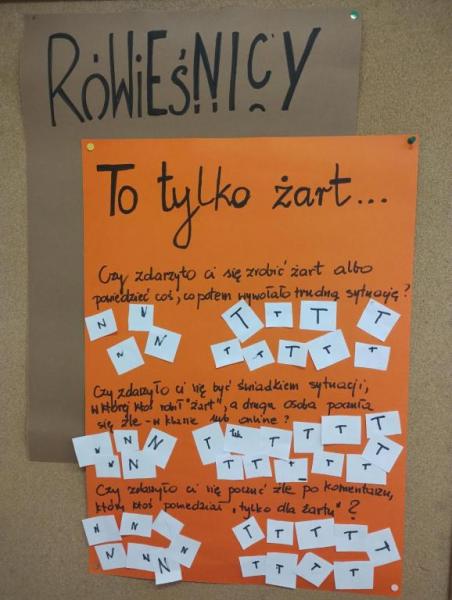 RÓWIEŚNICY
To tylko żart...
Czy zdarzyło ci się zrobić żart albo
powiedzieć coś, co potem wywołało trudną sytuację?
N N T T T T
N N T T T T T
Czy zdarzyło ci się być świadkiem sytuacji,
w której ktoś robił "żart", a druga osoba poczuła
się źle - w klasie lub online?
N N N T tak T T T T
N N T T T T T T
Czy zdarzyło ci się poczuć źle po komentarzu,
który ktoś powiedział "tylko dla żartu"?
N N N T T T T T
N N N N T T T T T